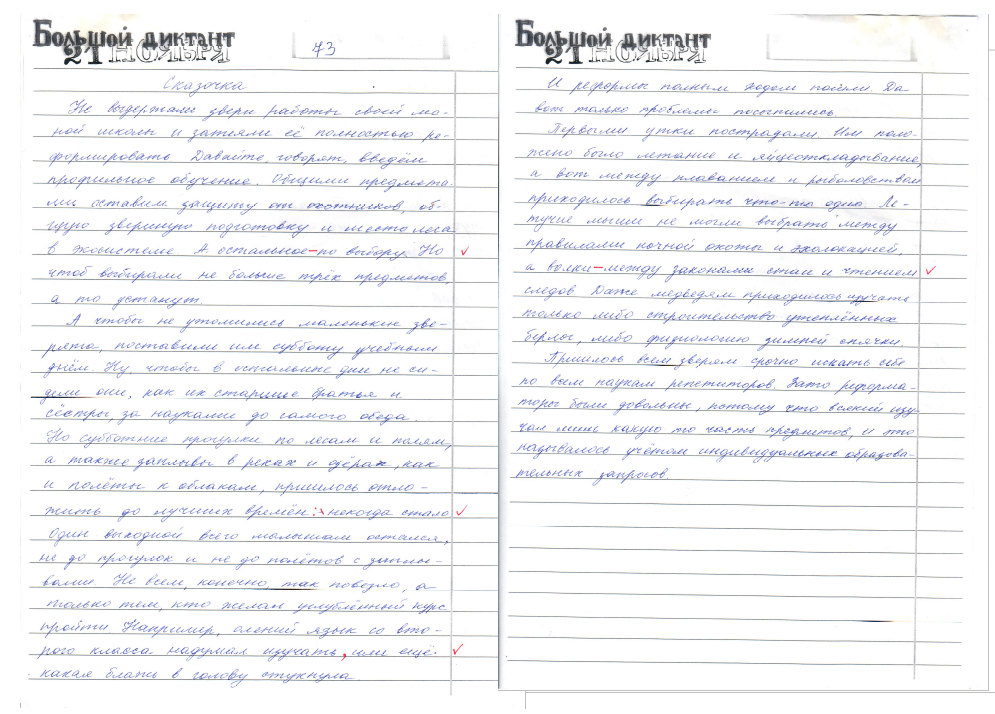 Большой диктант
21 ноября
73
Сказочка
Не выдержали звери работы своей лес-
ной школы и затеяли её полностью ре-
формировать. Давайте, говорят, введём
профильное обучение. Общими предмета-
ми оставим защиту от охотников, об-
щую звериную подготовку и место леса
в экосистеме. А остальное – по выбору. Но
чтоб выбирали не больше трёх предметов,
а то устанут.
А чтобы не утомились маленькие зве-
рята, поставили им субботу учебным
днём. Ну, чтобы в остальные дни не си-
дели они, как их старшие братья и
сёстры, за науками до самого обеда.
Но субботние прогулки по лесам и полям,
а также заплывы в реках и озёрах, как
и полёты к облакам, пришлось отло-
жить до лучших времён: некогда стало.
Один выходной всего малышам остался,
не до прогулок и не до полётов с заплы-
вами. Не всем, конечно, так повезло, а
только тем, кто желал углублённый курс
пройти. Например, олений язык со вто-
рого класса надумал изучать, или ещё
какая блажь в голову стукнула.
Большой диктант
21 ноября
И реформы полным ходом пошли. Да
вот только проблемы посыпались.
Первыми утки пострадали. Им поло-
жено было летание и яйцеоткладывание,
а вот между плаванием и рыболовством
приходилось выбирать что-то одно. Ле-
тучие мыши не могли выбрать между
правилами ночной охоты и эхолокацией,
а волки – между законами стаи и чтением
следов. Даже медведям приходилось изучать
только либо строительство утеплённых
берлог, либо физиологию зимней спячки.
Пришлось всем зверям срочно искать себе
по всем наукам репетиторов. Зато реформа-
торы были довольны, потому что всякий изу-
чал лишь какую то часть предметов, и это
называлось учётом индивидуальных образова-
тельных запросов.